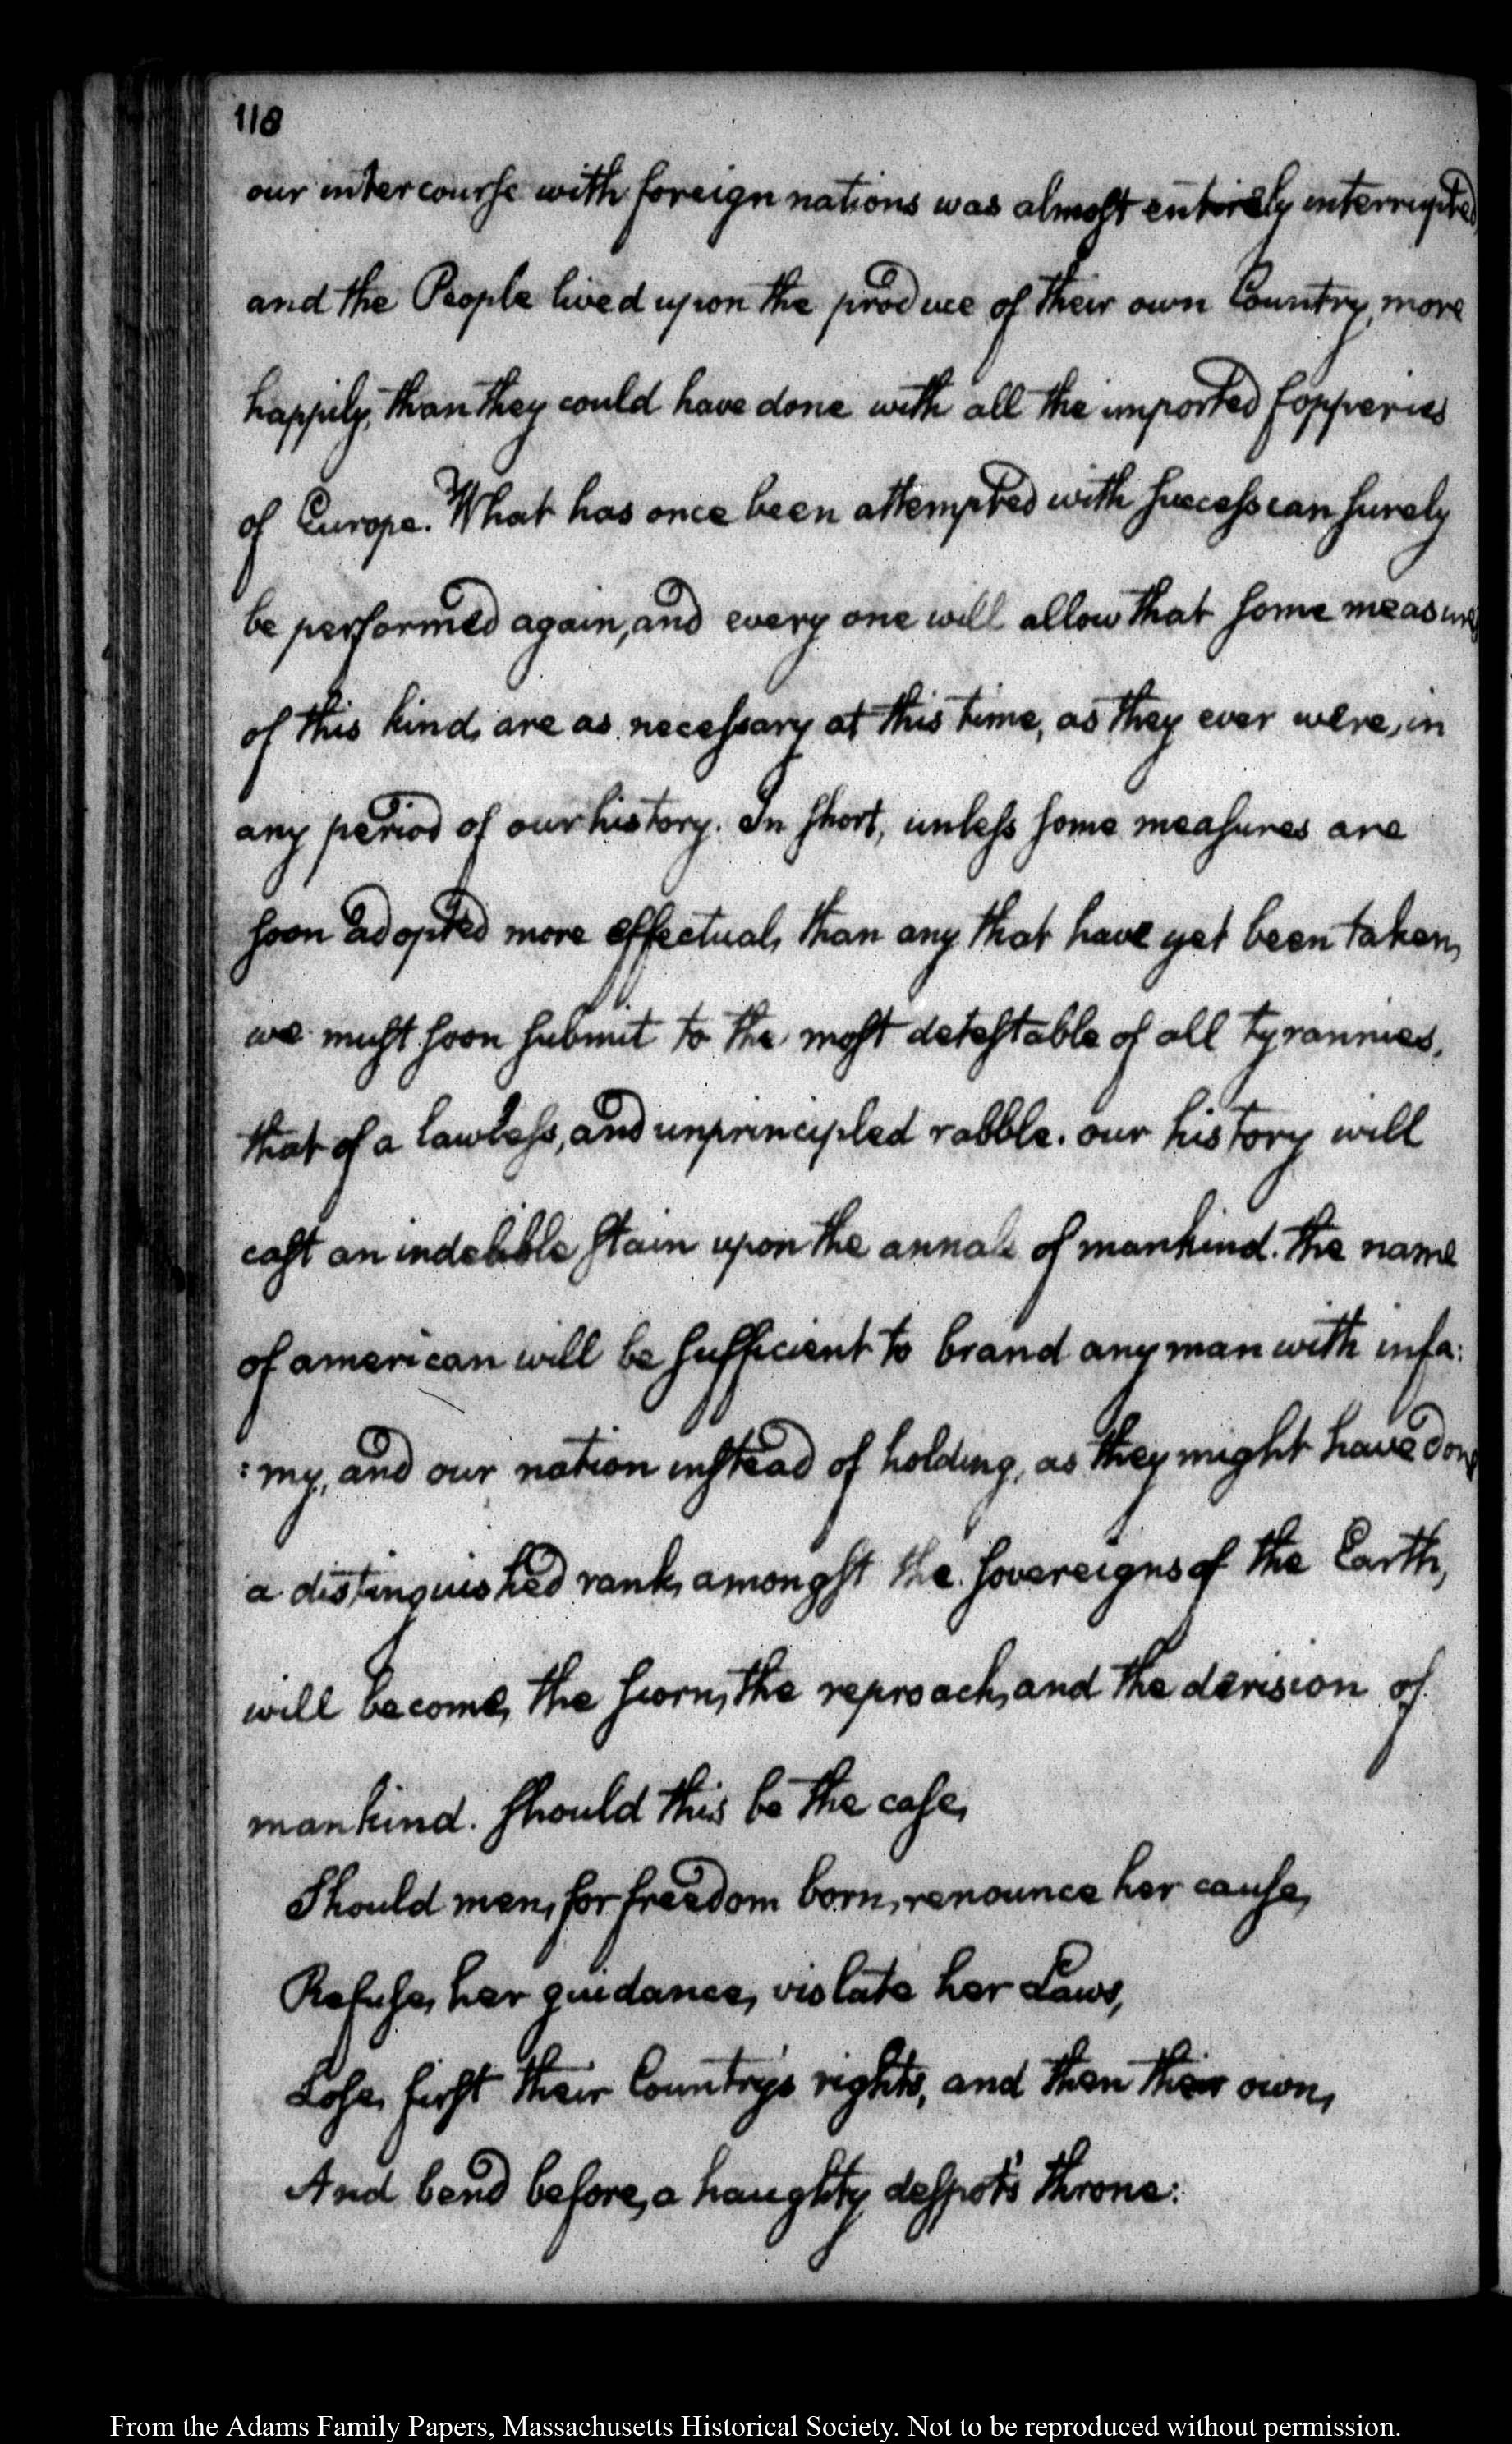 118
our intercourse with foreign nations was almost entirely interrupted,
and the People lived upon the produce of their own Country, more
happily, than they could have done with all the imported fopperies
of Europe. What has once been attempted with success can surely
be performed again, and every one will allow that some measures
of this kind, are as necessary at this time, as they ever were, in
any period of our history. In short, unless some measures are
soon adopted more effectual, than any that have yet been taken,
we must soon submit to the most detestable of all tyrannies,
that of a lawless, and unprincipled rabble. our history will
cast an indelible stain upon the annals of mankind. the name
of american will be sufficient to brand any man with infa:
:my, and our nation instead of holding, as they might have done
a distinguished rank, amongst the sovereigns of the Earth,
will become, the scorn, the reproach, and the derision of
mankind. Should this be the case,
Should men, for freedom born, renounce her cause,
Refuse, her guidance, violate her Laws,
Lose, first their Country's rights, and then their own,
And bend before, a haughty despot's throne:
From the Adams Family Papers, Massachusetts Historical Society. Not to be reproduced without permission.